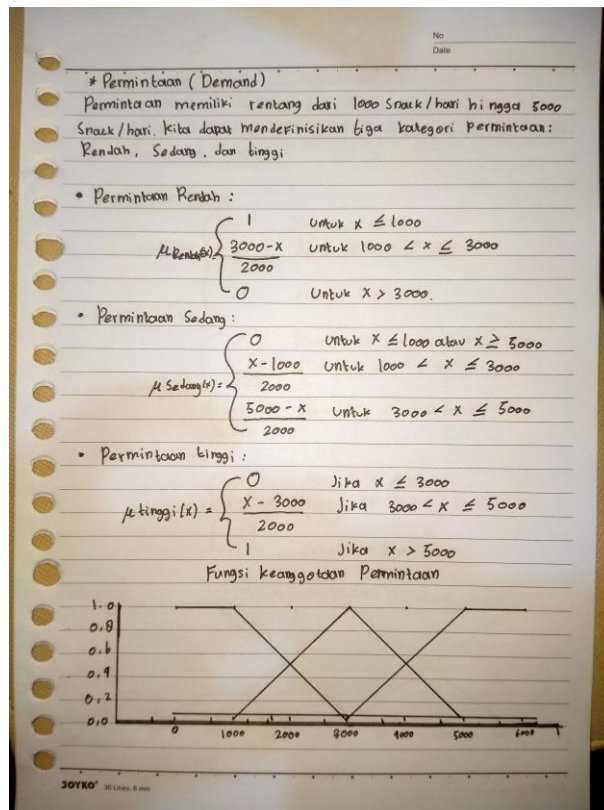 No
Date
* Permintaan ( Demand )
Permintaan memiliki rentang dari 1000 Snack/hari hingga 5000
Snack/hari. kita dapat mendefinisikan tiga kategori permintaan:
Rendah, Sedang, dan tinggi
• Permintaan Rendah :
1 untuk x ≤ 1000
μ Rendah(x) = 3000-x untuk 1000 < x ≤ 3000
2000
0 Untuk x > 3000.
• Permintaan Sedang :
0 untuk x ≤ 1000 atau x ≥ 5000
x - 1000 untuk 1000 < x ≤ 3000
μ Sedang(x) = 2000
5000 - x untuk 3000 < x ≤ 5000
2000
• Permintaan tinggi :
0 Jika x ≤ 3000
μ tinggi(x) = x - 3000 Jika 3000 < x ≤ 5000
2000
1 Jika x > 5000
Fungsi keanggotaan Permintaan
1.0
0.8
0.6
0.4
0.2
0.0
0 1000 2000 3000 4000 5000 6000
JOYKO 30 Lines, 6 mm